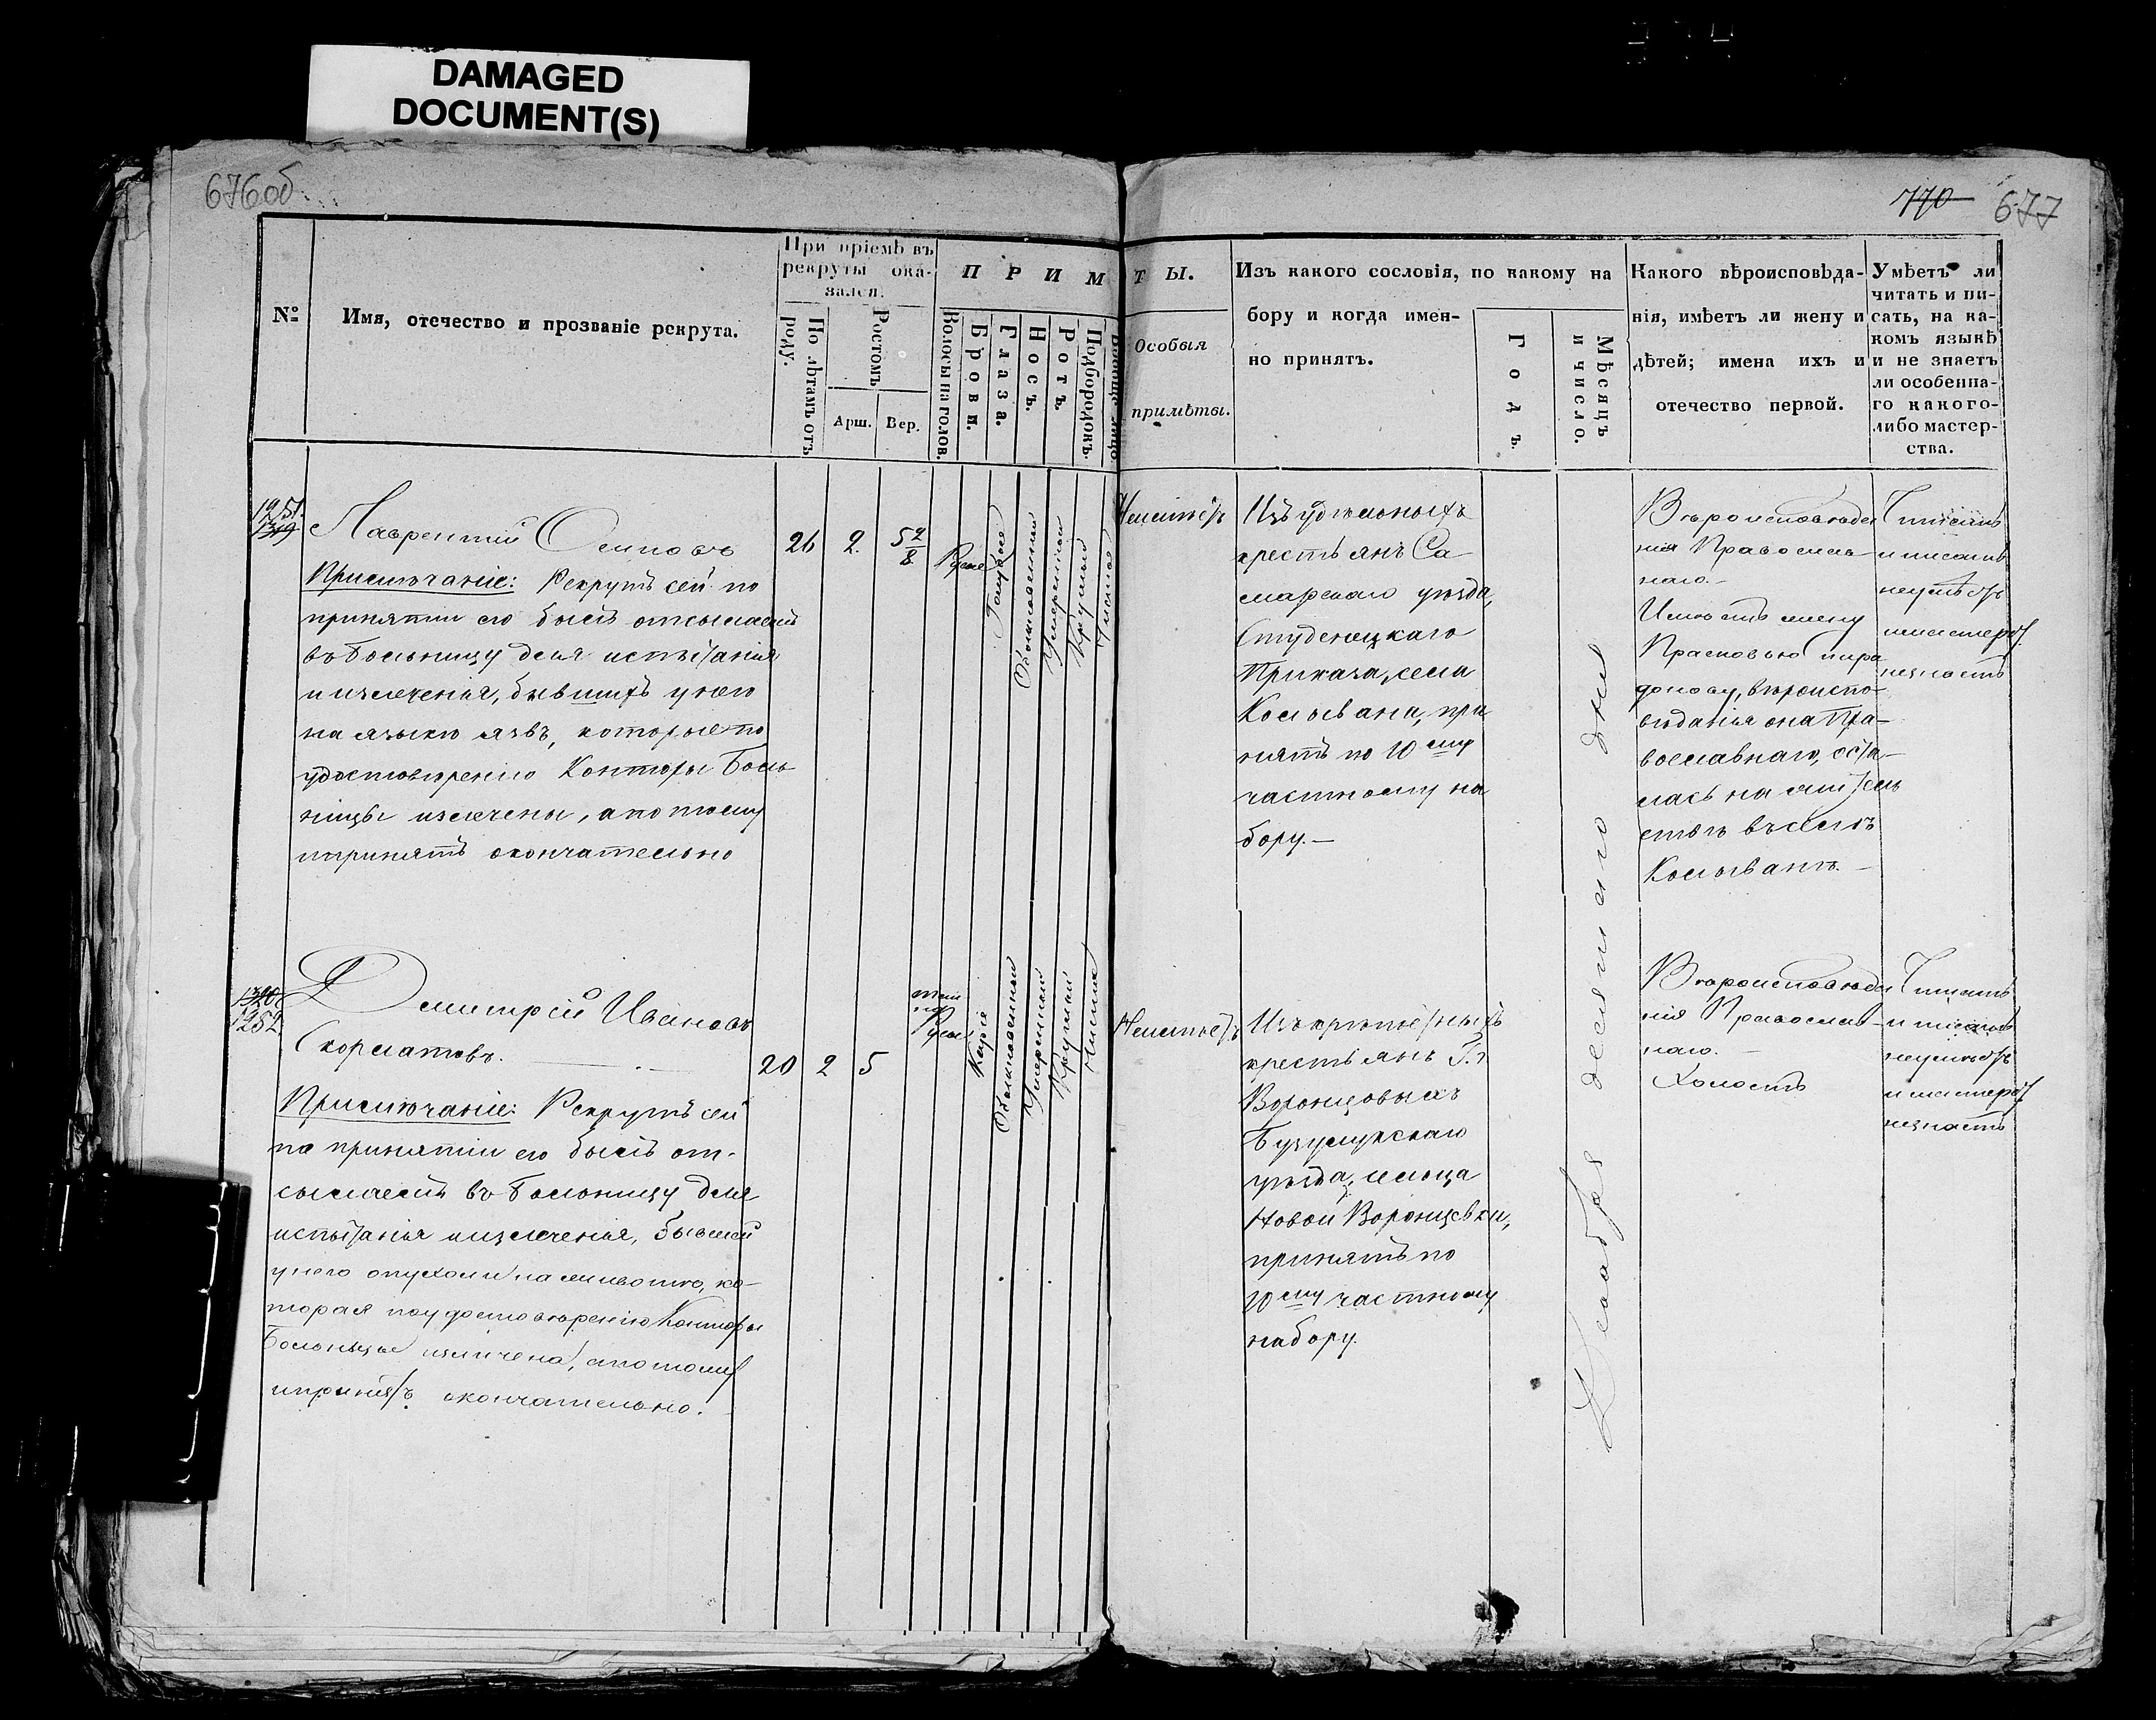 DAMAGED
DOCUMENT(S)
676об
770 677
№
Имя, отечество и прозваніе рекрута.
При пріемѣ въ
рекруты ока-
зался.
По лѣтамъ отъ
роду.
Ростомъ
Арш.
Вер.
ПРИМ
Волосы на голов.
Брови.
Глаза.
Носъ.
Ротъ.
Подбородокъ.
Вообще лицо.
ТЫ.
Особыя
примѣты.
Изъ какого сословія, по какому на
бору и когда имен-
но принятъ.
Годъ.
Мѣсяцъ
и число.
Какого вѣроисповѣда-
нія, имѣетъ ли жену и
дѣтей; имена ихъ и
отечество первой.
Умѣетъ ли
читать и пи-
сать, на ка-
комъ языкѣ
и не знаетъ
ли особенна-
го какого-
либо мастер-
ства.
1251.
1319
Лаврентій Осиповъ
Примѣчаніе: Рекрутъ сей по
принятіи его былъ отсылаемъ
въ Больницу для испытанія
и излеченія, бывшихъ у него
на языкѣ язвъ, которые по
удостовѣренію Конторы Боль
ницы излечены, а потому
и принятъ окончательно
26 2. 5 2/8
Русые
Голубые
Обыкновенный
Умеренный
Круглый
Чистое
Неимѣетъ
Изъ удѣльныхъ
крестьянъ Са
марскаго уѣзда,
Студенецкаго
Приказа, села
Колывана, при
нятъ по 10 ему
частному на
бору.—
Вѣроисповѣда
нія Православ
наго.—
Имѣетъ жену
Прасковью
вѣроиспо-
вѣданія она Пра-
вославнаго, оста-
лась на житель
ствѣ въ селѣ
Колыванѣ.—
Читать
и писать
неумѣетъ
и мастерст.
незнаетъ
1320
1252
Дмитрій Ивановъ
Скорматовъ.
Примѣчаніе: Рекрутъ сей
по принятіи его былъ от-
сылаемъ въ Больницу для
испытанія и излеченія, бывшей
у него опухоли на животѣ, ко-
торая по удостовѣренію Конторы
Больницы излечена, а потому
и принятъ окончательно.
20 2 5
темно
Русые
Каріе
Обыкновенный
Умеренный
Круглый
Чистое
Неимѣетъ
Изъ крѣпостныхъ
крестьянъ Г.г.
Воронцовыхъ
Бузулукскаго
уѣзда, сельца
Новой Воронцевки,
принятъ по
10 ему частному
набору.
Декабря девятаго дня
Вѣроисповѣда
нія Православ-
наго.—
Холостъ
Читать
и писать
неумѣетъ
и мастерст
незнаетъ